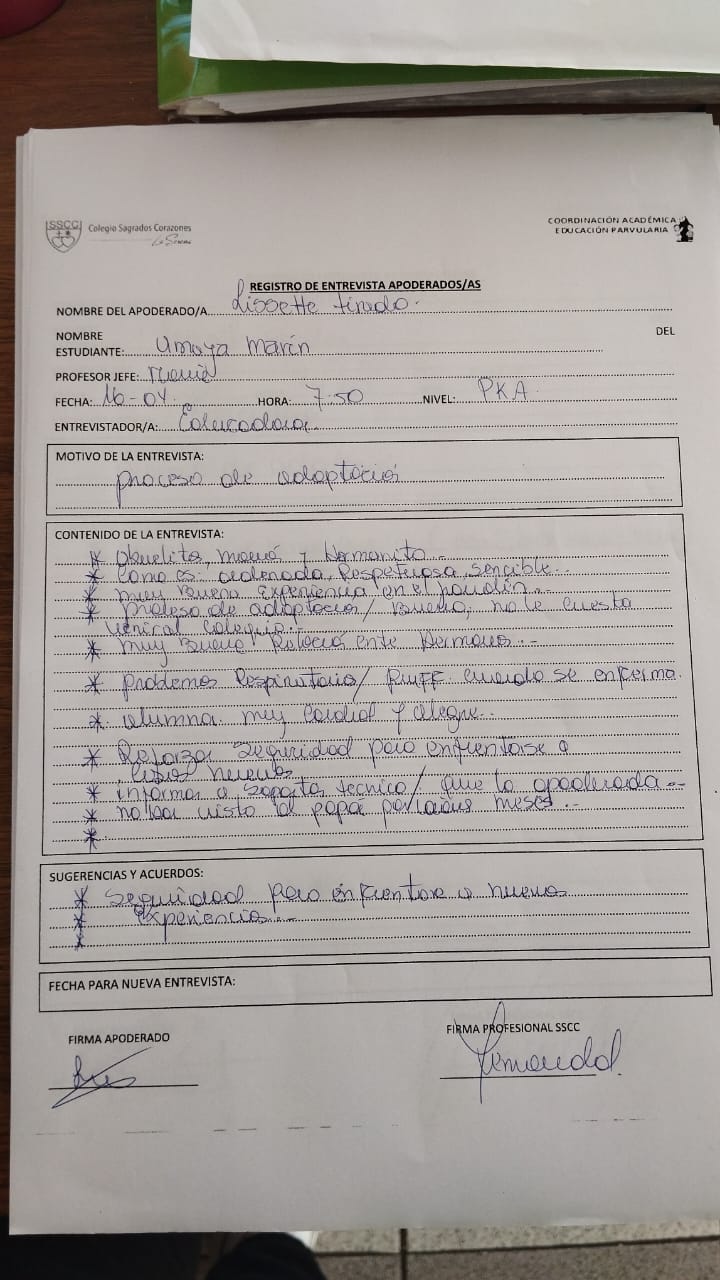 SSCC
Colegio Sagrados Corazones
La Serena
COORDINACIÓN ACADÉMICA
EDUCACIÓN PARVULARIA
REGISTRO DE ENTREVISTA APODERADOS/AS
NOMBRE DEL APODERADO/A Lissette
NOMBRE DEL
ESTUDIANTE: Umaya Marín
PROFESOR JEFE:
FECHA: 16-04. HORA: 7:50 NIVEL: PKA
ENTREVISTADOR/A: Educadora.
MOTIVO DE LA ENTREVISTA:
proceso de adaptació
CONTENIDO DE LA ENTREVISTA:
* Abuelita, mamá y Hermanito
* Como es: ordenada, Respetuosa, sencible.
* muy Buena Experiencia en el Jardín.
* proceso de adaptacion / Bueno, no le cuesta
venir al colegio.
* muy Buena Relació ente Hermanos.-
* problemas Respiratorio / puff cuando se enferma.
* alumna muy cordial y alegre.
* Reforzar Seguridad para enfrentarse a
nuevas
* informa a soporte tecnico / que la apoderada
* no ha visto al papá por meses.
*
SUGERENCIAS Y ACUERDOS:
* Seguridad para enfrentarse a nuevas
* Experiencias.
*
FECHA PARA NUEVA ENTREVISTA:
FIRMA APODERADO
FIRMA PROFESIONAL SSCC